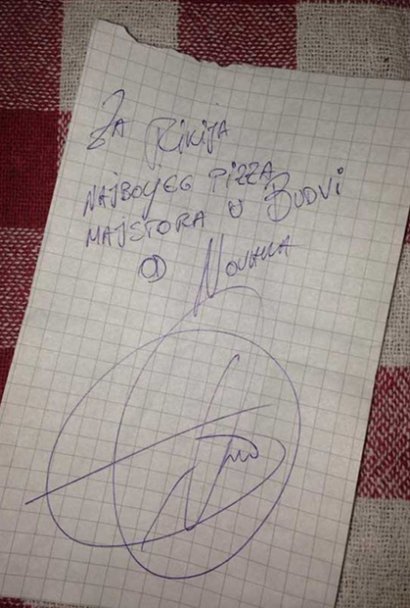 ZA RIKIJA
NAJBOLJEG PIZZA
MAJSTORA U BUDVI
OD NOVAKA